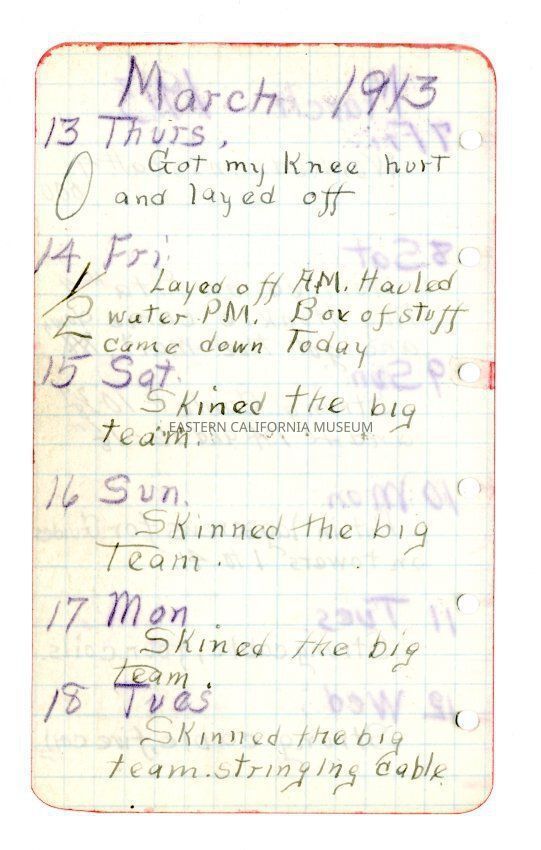 March 1913
13 Thurs.
0 Got my Knee hurt
and layed off
14 Fri.
1/2 Layed off A.M. Hauled
water P.M. Box of stuff
came down Today
15 Sat.
Skined the big
team.
EASTERN CALIFORNIA MUSEUM
16 Sun.
Skinned the big
Team.
17 Mon
Skined the big
team.
18 Tues
Skinned the big
team. stringing cable